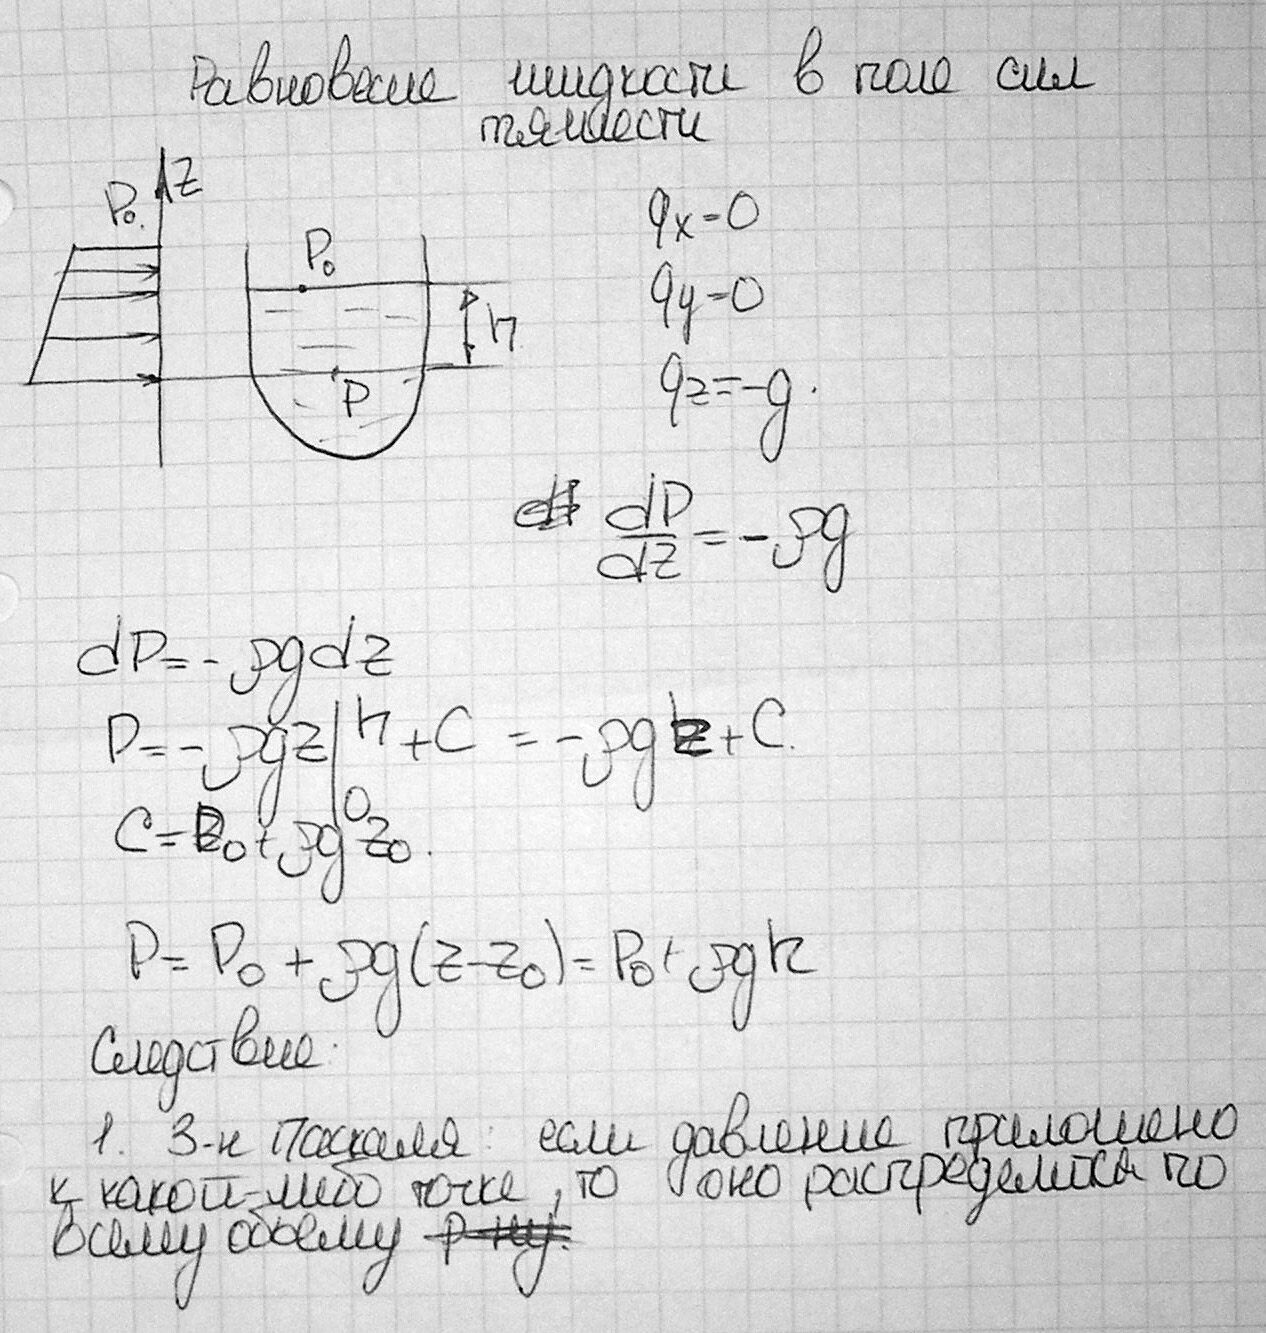 Равновесие жидкости в поле сил
тяжести
Z
P₀
P₀
h
P
qx=0
qy=0
qz=-g.
dP/dz = -ρg
dP=-ρgdz
P=-ρgz|₀ʰ+C = -ρgz+C.
C=P₀+ρgz₀.
P=P₀+ρg(z-z₀)=P₀+ρgh
Следствие:
1. З-н Паскаля: если давление приложено
к какой-либо точке, то оно распределится по
всему объему